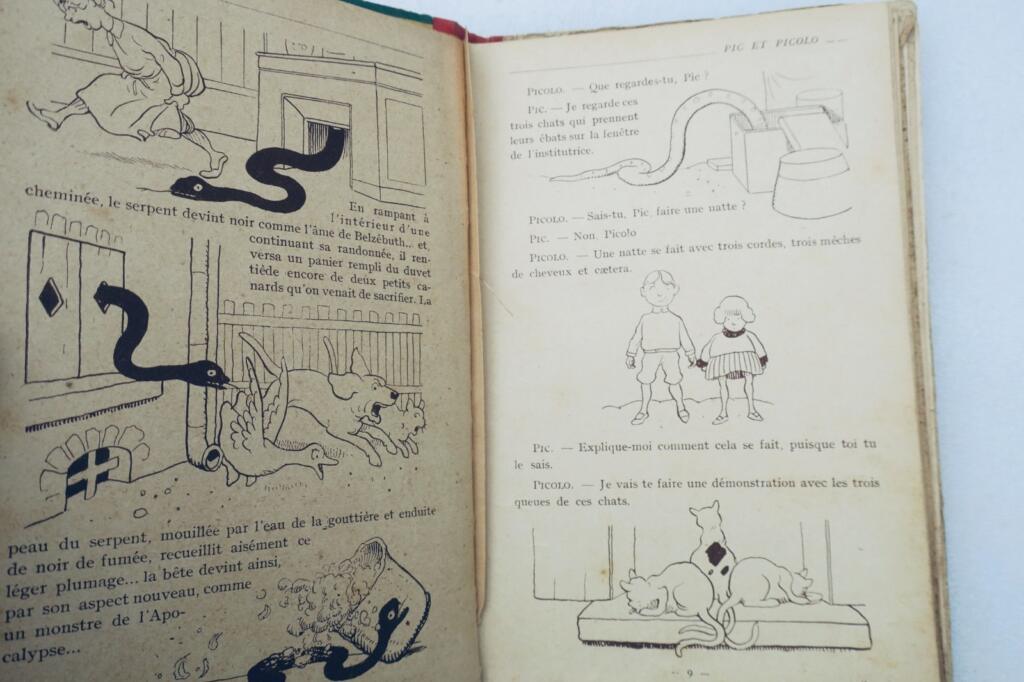 En rampant à
l'intérieur d'une
cheminée, le serpent devint noir comme l'âme de Belzébuth... et,
continuant sa randonnée, il ren-
versa un panier rempli du duvet
tiède encore de deux petits ca-
nards qu'on venait de sacrifier. La
peau du serpent, mouillée par l'eau de la gouttière et enduite
de noir de fumée, recueillit aisément ce
léger plumage... la bête devint ainsi,
par son aspect nouveau, comme
un monstre de l'Apo-
calypse...
PIC ET PICOLO
PICOLO. — Que regardes-tu, Pic ?
PIC. — Je regarde ces
trois chats qui prennent
leurs ébats sur la fenêtre
de l'institutrice.
PICOLO. — Sais-tu, Pic, faire une natte ?
PIC. — Non, Picolo
PICOLO. — Une natte se fait avec trois cordes, trois mèches
de cheveux et cætera.
PIC. — Explique-moi comment cela se fait, puisque toi tu
le sais.
PICOLO. — Je vais te faire une démonstration avec les trois
queues de ces chats.
— 9 —